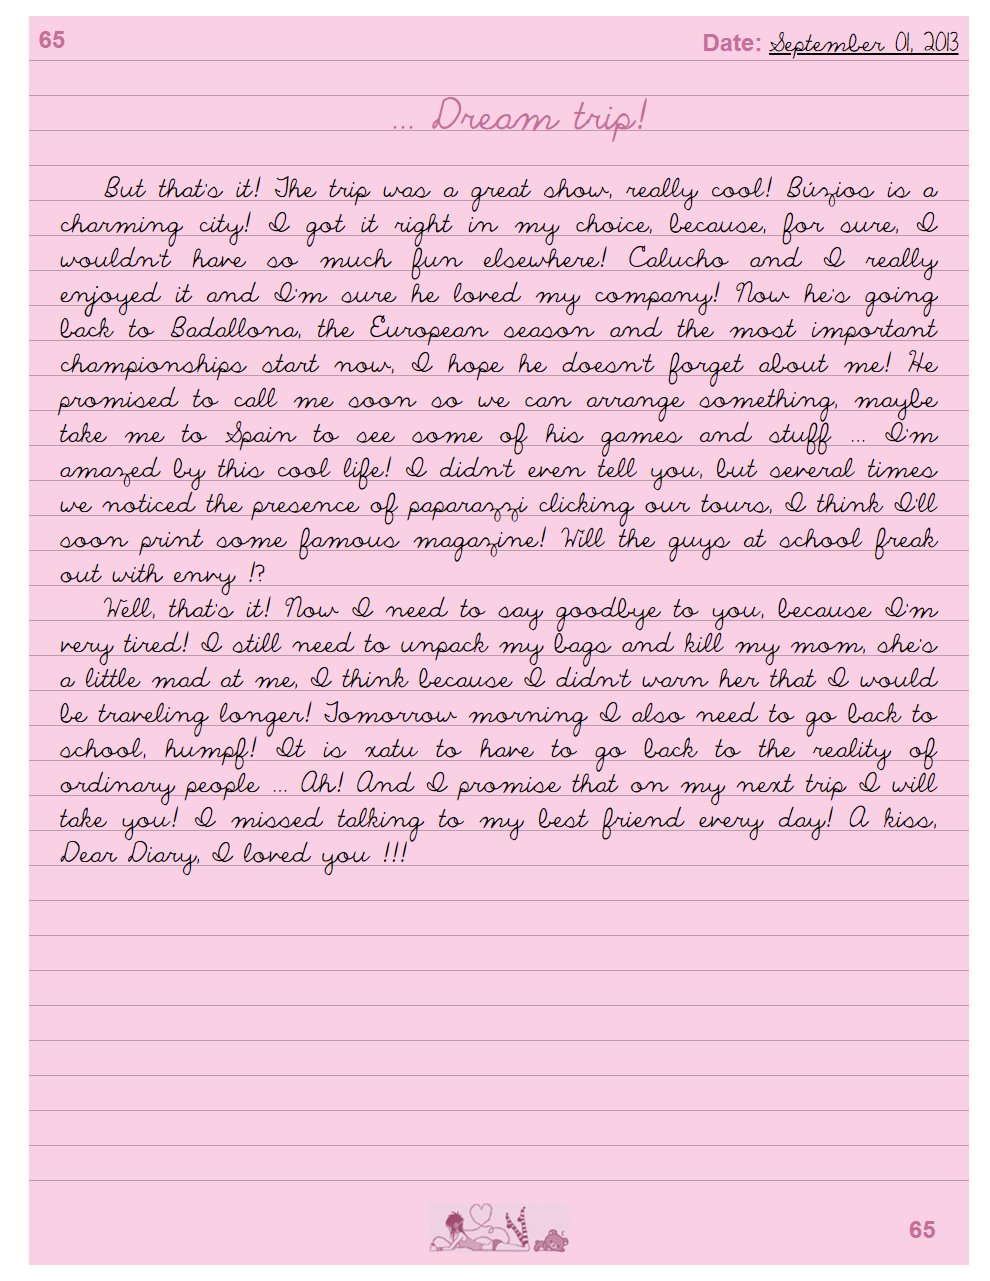 65
Date: September 01, 2013
... Dream trip!
But that's it! The trip was a great show, really cool! Búzios is a
charming city! I got it right in my choice, because, for sure, I
wouldn't have so much fun elsewhere! Calucho and I really
enjoyed it and I'm sure he loved my company! Now he's going
back to Badallona, the European season and the most important
championships start now, I hope he doesn't forget about me! He
promised to call me soon so we can arrange something, maybe
take me to Spain to see some of his games and stuff ... I'm
amazed by this cool life! I didn't even tell you, but several times
we noticed the presence of paparazzi clicking our tours, I think I'll
soon print some famous magazine! Will the guys at school freak
out with envy !?
Well, that's it! Now I need to say goodbye to you, because I'm
very tired! I still need to unpack my bags and kill my mom, she's
a little mad at me, I think because I didn't warn her that I would
be traveling longer! Tomorrow morning I also need to go back to
school, humpf! It is xatu to have to go back to the reality of
ordinary people ... Ah! And I promise that on my next trip I will
take you! I missed talking to my best friend every day! A kiss,
Dear Diary, I loved you !!!
65